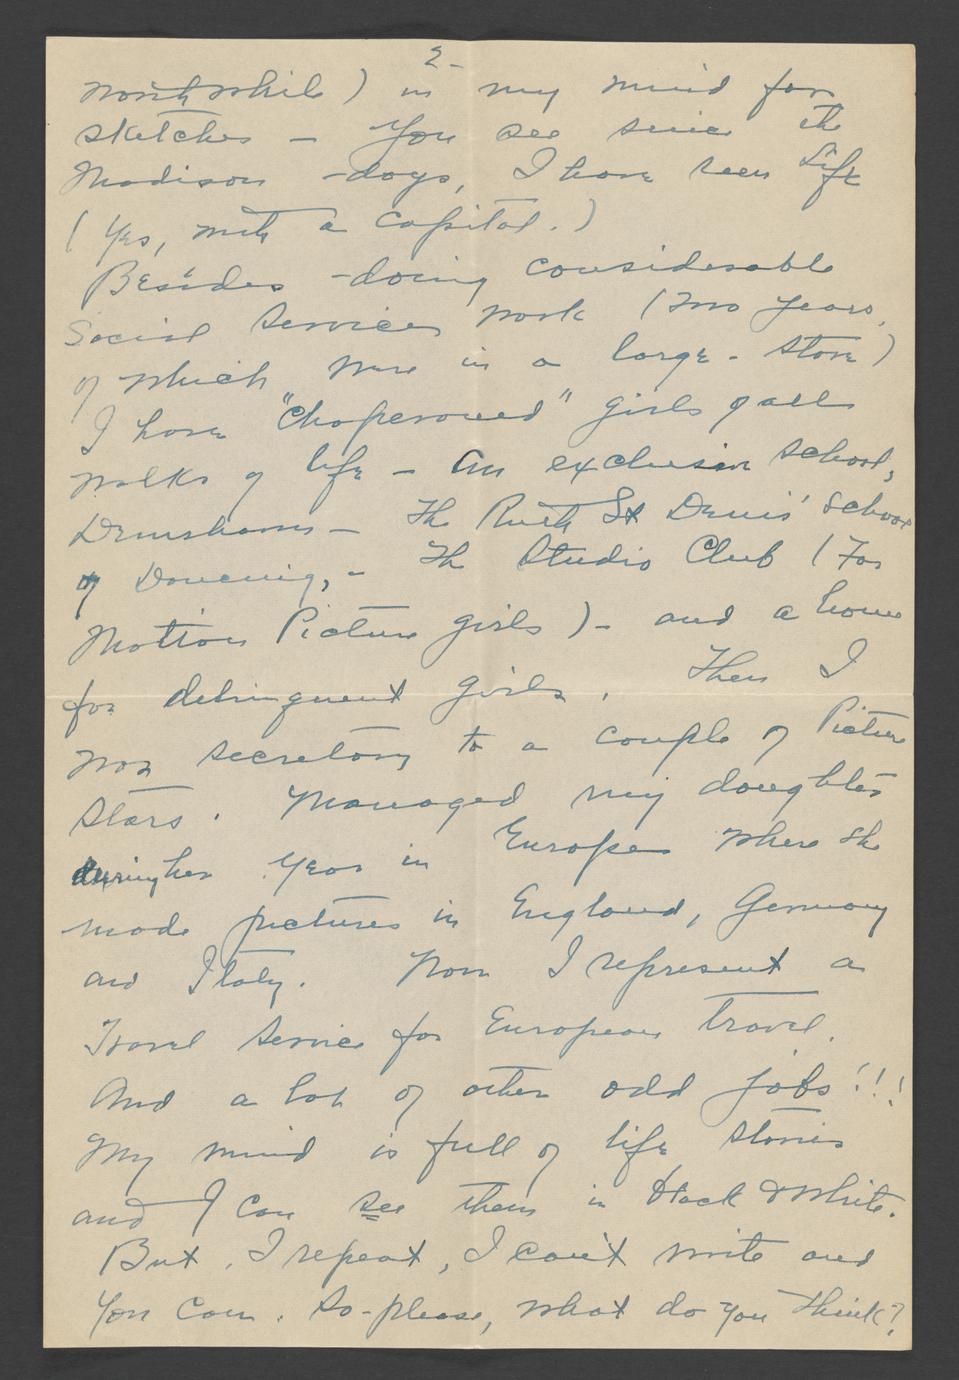 2-
worthwhile) in my mind for
sketches - You see since the
Madison -days, I have seen Life
(Yes, with a capital.)
Besides -doing considerable
Social Services work (two years,
of which were in a large - store)
I have "chaperoned" girls of all
walks of life - An exclusive school,
Denishawn - The Ruth St Denis' School
of Dancing, - The Studio Club (For
Motion Picture girls) - and a home
for delinquent girls. Then I
was secretary to a couple of Picture
Stars. Managed my daughter
during her year in Europe where she
made pictures in England, Germany
and Italy. Now I represent a
Travel Service for European travel.
And a lot of other odd jobs!!!
My mind is full of life stories
and I can see them in black & white.
But, I repeat, I can't write and
You can. So-please, what do you think?